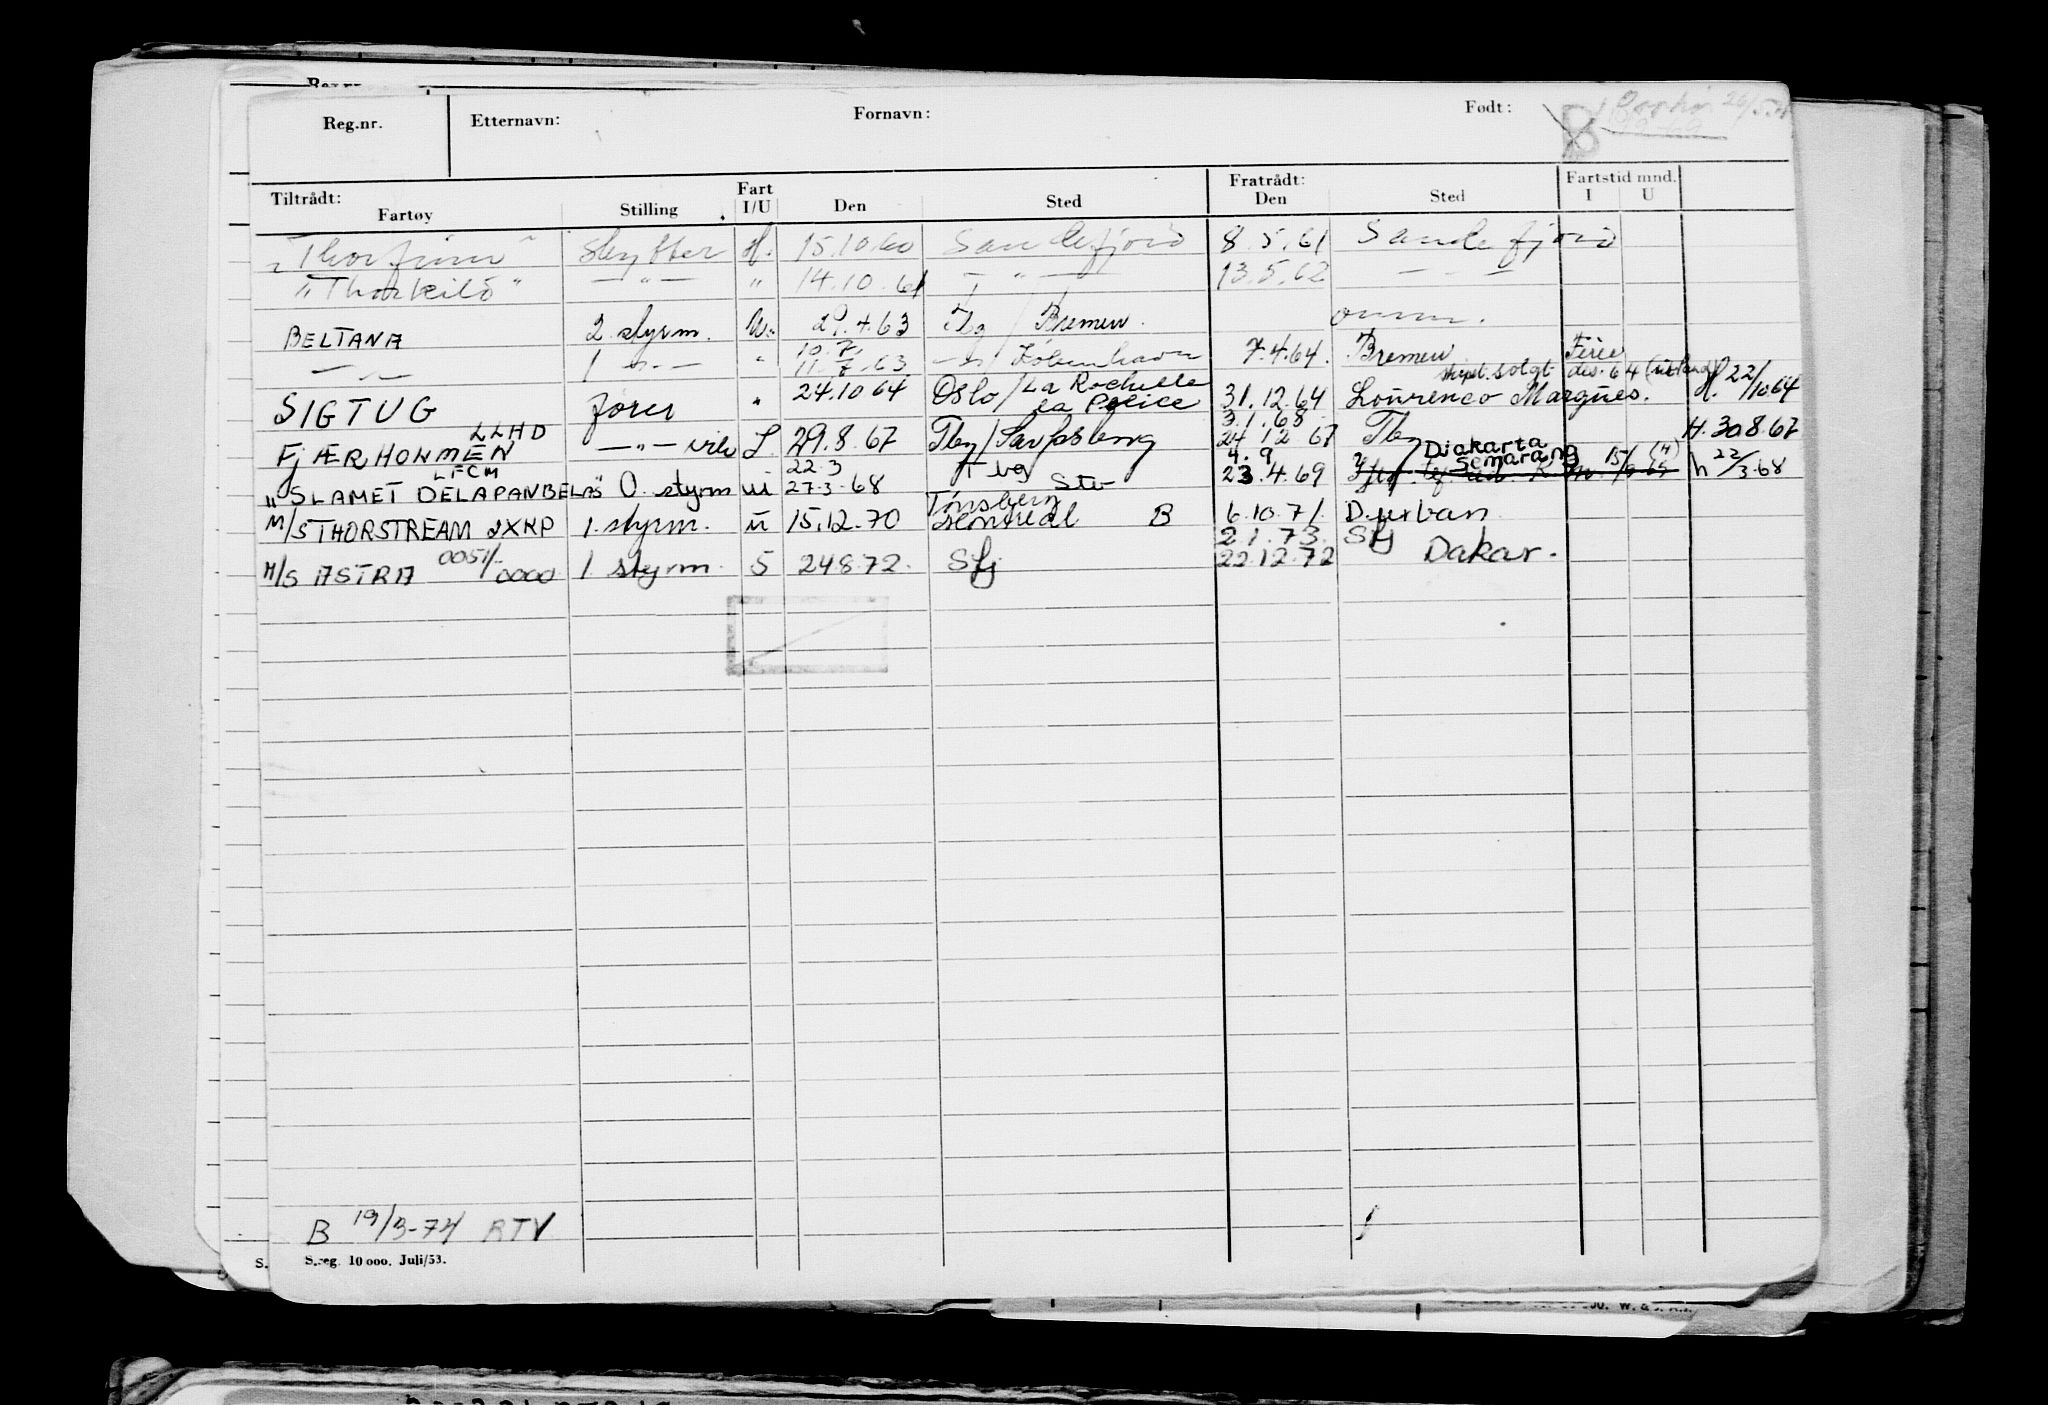 Reg.nr. Etternavn: Fornavn: Født: B
Tiltrådt: Fartøy Stilling Fart I/U Den Sted Fratrådt: Den Sted Fartstid mnd. I U
"Thorfinn" skytter H. 15.10.60 Sandefjord 8.5.61 Sandefjord
"Thorkild" — " — " 14.10.61 — " — 13.5.62 — " —
BELTANA 2 styrm. U. 29.4.63 Tbg / Bremen omm.
10.7.
— " — 1 — " — " 11.7.63 København 7.4.64. Bremen Ferie
skipet solgt des. 64 (utland)
SIGTUG fører " 24.10 64 Oslo / La Rochelle 31.12.64 Lourenco Marques. H. 22/10 64
La Police
LLHD 3.1.68
FJÆRHOLMEN — " — vik S. 29.8.67 Tbg / Sarpsborg 24 12 67 Tbg H. 30 8.67
LFCM 22.3 Tbg 4.9 Djakarta
"SLAMET DELAPANBELAS" O. styrm u 27.3.68 Stv 23.4.69 Semarang h 22/3-68
Tønsberg
M/S THORSTREAM JXKP 1. styrm. u 15.12.70 Montreal B 6.10.71. Durban
0051/ 2.1.73. Sfj
M/S ASTRA 0000 1. styrm. S 24 8.72. Sfj 22.12.72 Dakar.
B 19/3-74 RTV
S.reg. 10 000. Juli/53.